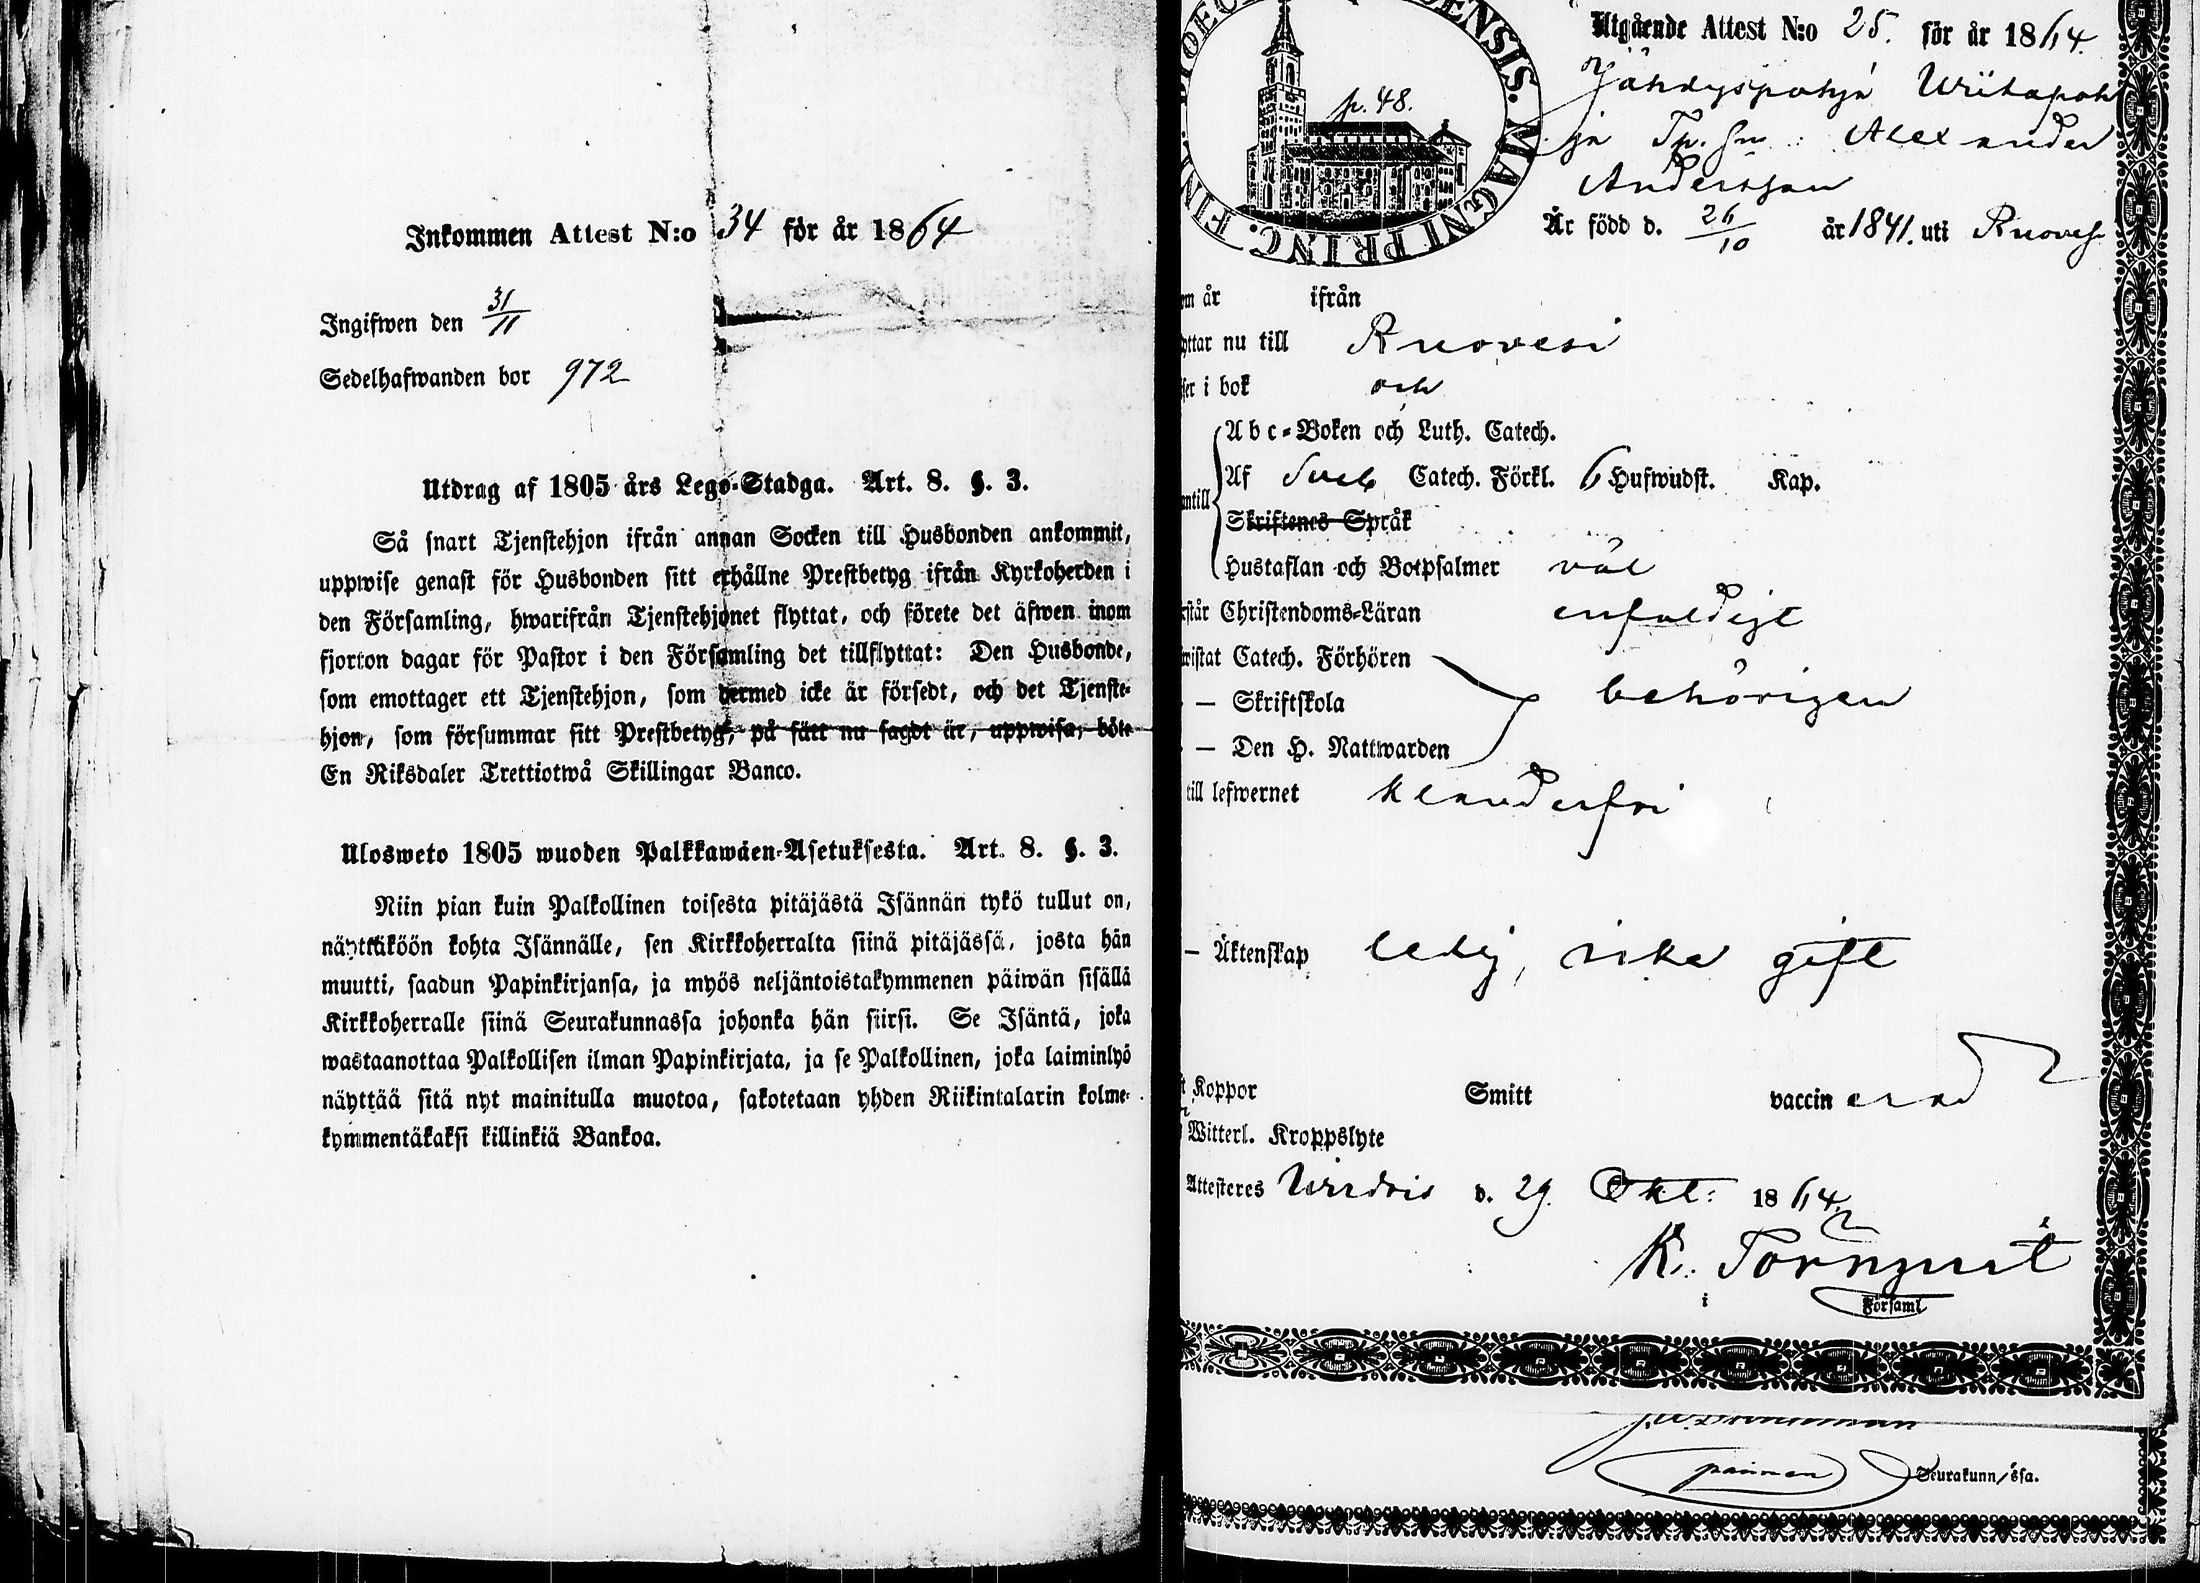 Inkommen Attest N:o 34 för år 1864
Ingifwen den 31/11
Sedelhafwanden bor 972
Utdrag af 1805 års Lego-Stadga. Art. 8. §. 3.
Så snart Tjenstehjon ifrån annan Socken till Husbonden ankommit,
uppwise genast för Husbonden sitt erhållne Prestbetyg ifrån Kyrkoherden i
den Församling, hwarifrån Tjenstehjonet flyttat, och förete det äfwen inom
fjorton dagar för Pastor i den Församling det tillflyttat: Den Husbonde,
som emottager ett Tjenstehjon, som dermed icke är försedt, och det Tjenste-
hjon, som försummar sitt Prestbetyg, på sätt nu sagdt är, uppwisa, böte
En Riksdaler Trettiotwå Skillingar Banco.
Ulosweto 1805 wuoden Palkkawäen-Asetuksesta. Art. 8. §. 3.
Niin pian kuin Palkollinen toisesta pitäjästä Isännän tykö tullut on,
näyttäköön kohta Isännälle, sen Kirkkoherralta siinä pitäjässä, josta hän
muutti, saadun Papinkirjansa, ja myös neljäntoistakymmenen päiwän sisällä
Kirkkoherralle siinä Seurakunnassa johonka hän siirsi. Se Isäntä, joka
wastaanottaa Palkollisen ilman Papinkirjata, ja se Palkollinen, joka laiminlyö
näyttää sitä nyt mainitulla muotoa, sakotetaan yhden Riikintalarin kolme-
kymmentäkaksi killinkiä Bankoa.
ENSIS. MAGNI PRINC. FIN
p. 48.
Utgående Attest N:o 25. för år 1864.
Jähdyspohja Uritapoh
ja Tp. Sn: Alexander
Andersson
Är född d. 26/10 år 1841. uti Ruoves
om år ifrån
yttar nu till Ruovesi
ser i bok och
Abc-Boken och Luth. Catech.
Af Sveb Catech. Förkl. 6 Hufwudst. Kap.
antill
Skriftenes Språk
Hustaflan och Botpsalmer väl
rstår Christendoms-Läran enfaldigt
wistat Catech. Förhören
— Skriftskola behörigen
— Den H. Nattwarden
till lefwernet klanderfri
— Äktenskap ledig, icke gift
t Koppor Smitt vaccinerad
Witterl. Kroppslyte
Attesteres Wirdois d. 29. Okt: 1864.
K. Törnqvist
i Församl
Seurakunnassa.